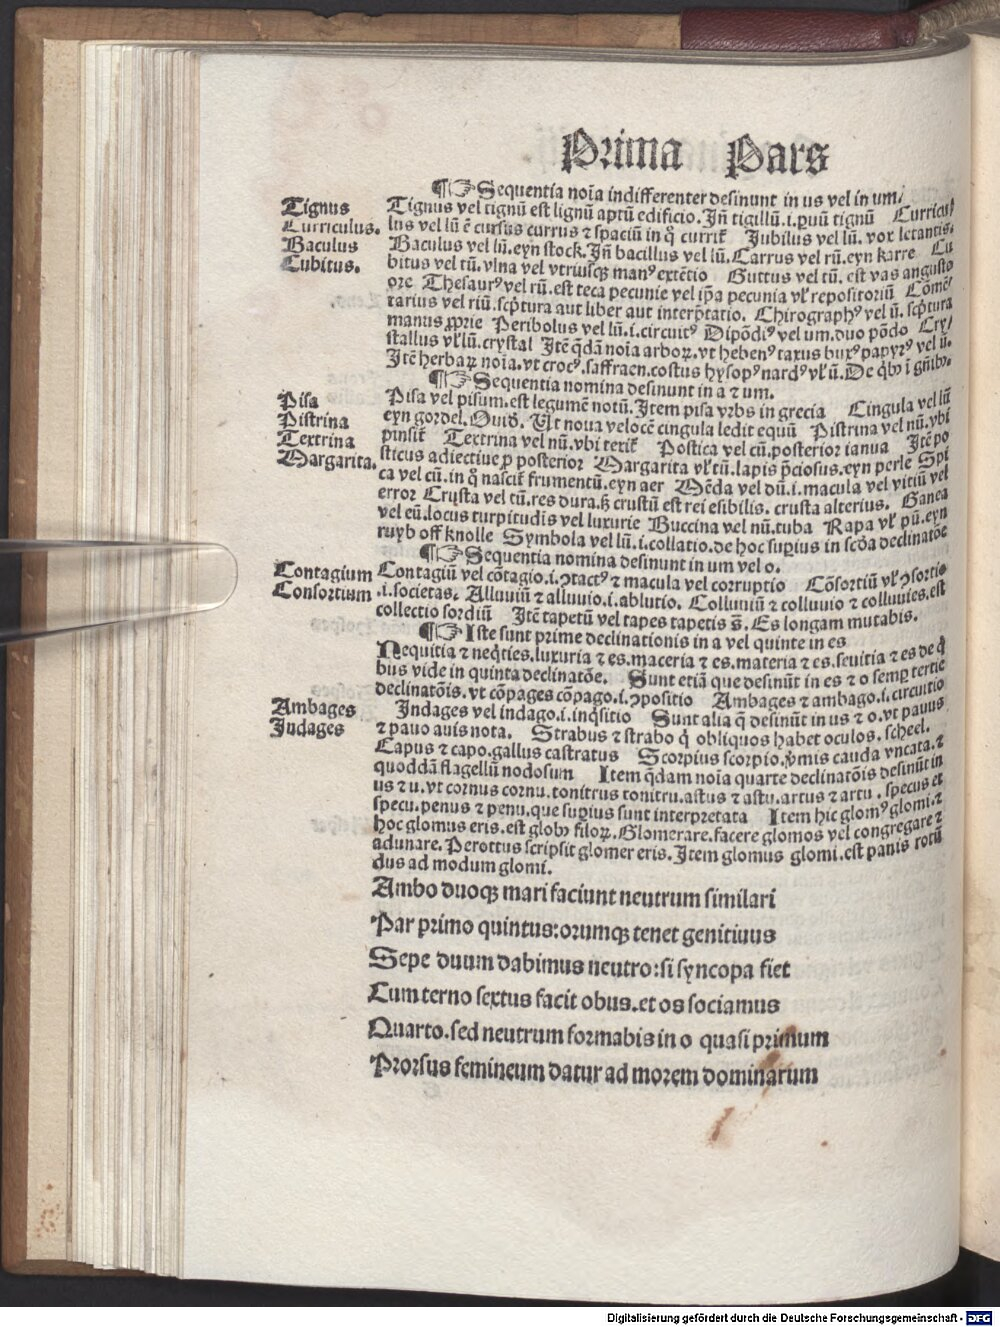 Prima Pars
¶☞Sequentia noĩa indifferenter desinunt in us vel in um/
Tignus
Curriculus.
Baculus
Cubitus.
Tignus vel tignũ est lignũ aptũ edificio. Jñ tigillũ .i. ꝑuũ tignũ Curricu/
lus vel lũ ẽ cursus currus ⁊ spaciũ in q̊ currit̃ Jubilus vel lũ. vox letantis.
Baculus vel lũ. eyn stock. Jñ bacillus vel lũ. Carrus vel rũ. eyn karre Cu
bitus vel tũ. vlna vel vtriusqꝫ manꝰ extẽtio Guttus vel tũ. est vas angusto
ore Thesaurꝰ vel rũ. est teca pecunie vel ip̃a pecunia vl̓ repositoriũ Cõmẽ/
tarius vel riũ. scp̃tura aut liber aut interp̃tatio. Chirographꝰ vel ũ. scp̃tura
manus ꝓprie Peribolus vel lũ .i. circuitꝰ Dipõdiꝰ vel um. duo põdo Cry/
stallus vl̓ lũ. crystal Jtẽ q̃dã noĩa arboꝝ. vt hebenꝰ taxus buxꝰ papyrꝰ vel ũ.
Jtẽ herbaꝝ noĩa. vt crocꝰ. saffraen. costus hysopꝰ nardꝰ vl̓ ũ. De q̃bꝫ ĩ gñibꝫ.
¶☞Sequentia nomina desinunt in a ⁊ um.
Pisa
Pistrina
Textrina
Margarita.
Pisa vel pisum. est legumẽ notũ. Jtem pisa vrbs in grecia Cingula vel lũ
eyn gordel. Ouid. Ut noua velocẽ cingula ledit equũ Pistrina vel nũ. vbi
pinsit̃ Textrina vel nũ. vbi texit̃ Postica vel cũ. posterior ianua Jtẽ po
sticus adiectiue ꝓ posterior Margarita vl̓ tũ. lapis p̃ciosus. eyn perle Spi
ca vel cũ. in q̊ nascit̃ frumentũ. eyn aer Mẽda vel dũ .i. macula vel vitiũ vel
error Crusta vel tũ. res dura. ß crustũ est rei esibilis. crusta alterius. Ganea
vel eũ. locus turpitudis vel luxurie Buccina vel nũ. tuba Rapa vl̓ pũ. eyn
ruyb off knolle Symbola vel lũ .i. collatio. de hoc suꝑius in scđa declinatõe
¶☞Sequentia nomina desinunt in um vel o.
Contagium
Consortium
Contagiũ vel cõtagio .i. ꝯtactꝰ ⁊ macula vel corruptio Cõsortiũ vl̓ ꝯsortio
.i. societas. Alluuiũ ⁊ alluuio .i. ablutio. Colluuiũ ⁊ colluuio ⁊ colluuies. est
collectio sordiũ Jtẽ tapetũ vel tapes tapetis s̃. Es longam mutabis.
¶☞Iste sunt prime declinationis in a vel quinte in es
Nequitia ⁊ neq̃ties. luxuria ⁊ es. maceria ⁊ es. materia ⁊ es. seuitia ⁊ es de q̃
bus vide in quinta declinatõe. Sunt etiã que desinũt in es ⁊ o semꝑ tertie
declinatõis. vt cõpages cõpago .i. ꝯpositio Ambages ⁊ ambago .i. circuitio
Ambages
Indages
Jndages vel indago .i. inq̃sitio Sunt alia q̃ desinũt in us ⁊ o. vt pauus
⁊ pauo auis nota. Strabus ⁊ strabo q̃ obliquos habet oculos. scheel.
Capus ⁊ capo. gallus castratus Scorpius scorpio. v̓mis cauda vncata. ⁊
quoddã flagellũ nodosum Item q̃dam noĩa quarte declinatõis desinũt in
us ⁊ u. vt cornus cornu. tonitrus tonitru. astus ⁊ astu. artus ⁊ artu. specus et
specu. penus ⁊ penu. que suꝑius sunt interpretata Item hic glomꝰ glomi. ⁊
hoc glomus eris. est globꝰ filoꝝ. Glomerare. facere glomos vel congregare ⁊
adunare. Perottus scripsit glomer eris. Jtem glomus glomi. est panis rotũ
dus ad modum glomi.
Ambo duoqꝫ mari faciunt neutrum similari
Par primo quintus: orumqꝫ tenet genitiuus
Sepe duum dabimus neutro: si syncopa fiet
Cum terno sextus facit obus. et os sociamus
Quarto. sed neutrum formabis in o quasi primum
Prorsus femineum datur ad morem dominarum
Digitalisierung gefördert durch die Deutsche Forschungsgemeinschaft - DFG